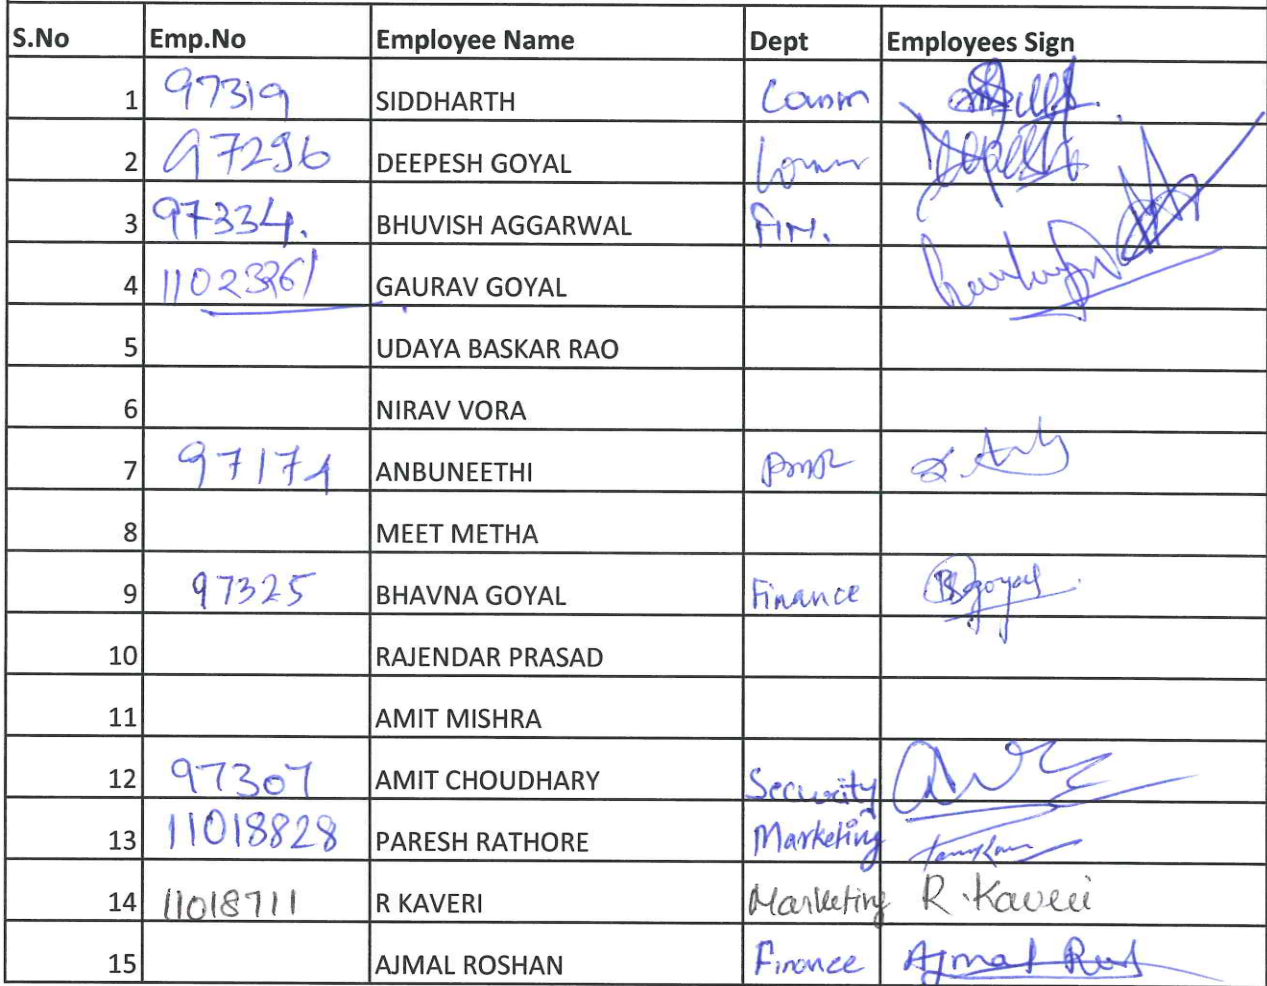 S.No Emp.No Employee Name Dept Employees Sign
1 97319 SIDDHARTH Comm
2 97296 DEEPESH GOYAL Deepesh
3 97334. BHUVISH AGGARWAL FIN.
4 GAURAV GOYAL
5 UDAYA BASKAR RAO
6 NIRAV VORA
7 97174 ANBUNEETHI
8 MEET METHA
9 97325 BHAVNA GOYAL Finance Bgoyal
10 RAJENDAR PRASAD
11 AMIT MISHRA
12 97307 AMIT CHOUDHARY Security
13 11018828 PARESH RATHORE Marketing
14 11018711 R KAVERI Marketing R.Kaveri
15 AJMAL ROSHAN Finance Ajmal